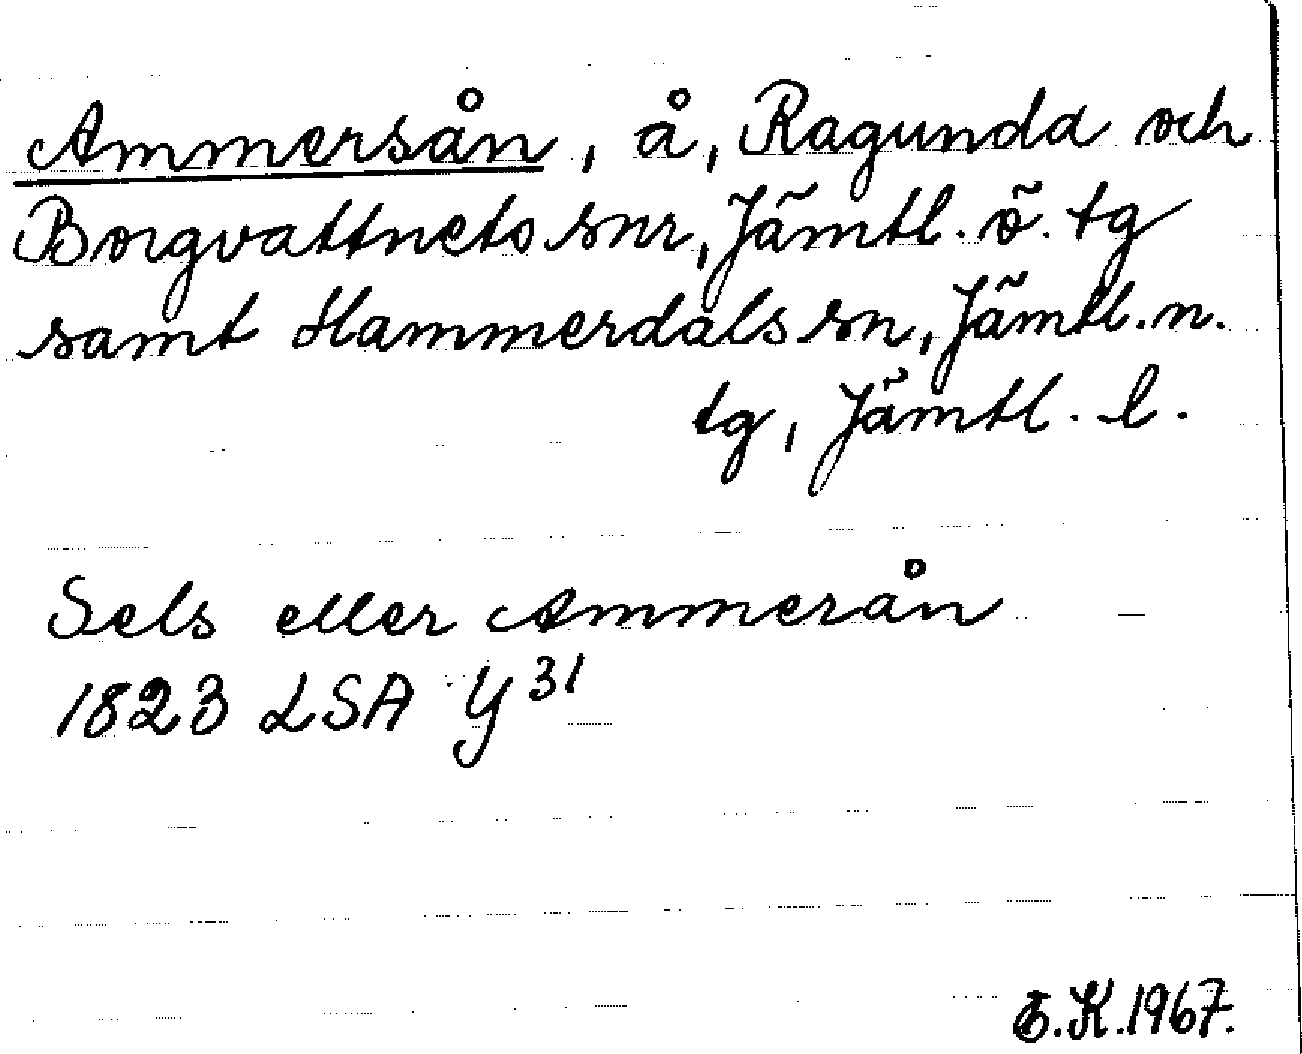 Ammersån, å, Ragunda och
Borgvattnets snr, Jämtl. ö. tg
samt Hammerdals sn, Jämtl. n.
tg, Jämtl. l.
Sels eller Ammerån
1823 LSA Y 31
E.K. 1967.